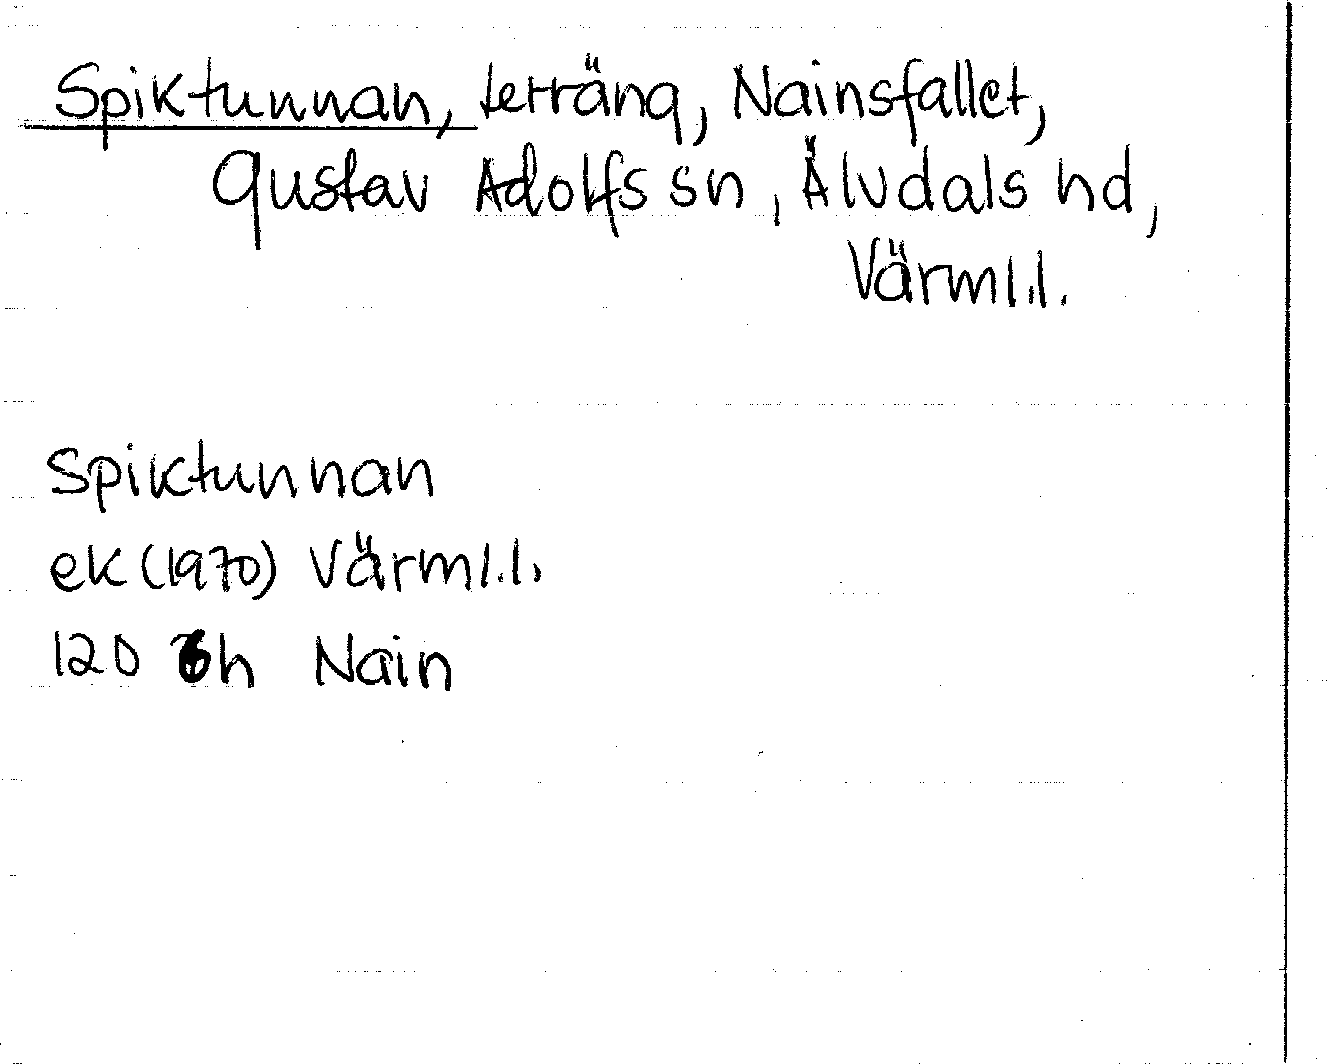 Spiktunnan, terräng, Nainsfallet,
Gustav Adolfs sn, Älvdals hd,
Värml.l.
Spiktunnan
ek (1970) Värml.l.
12D 6h Nain